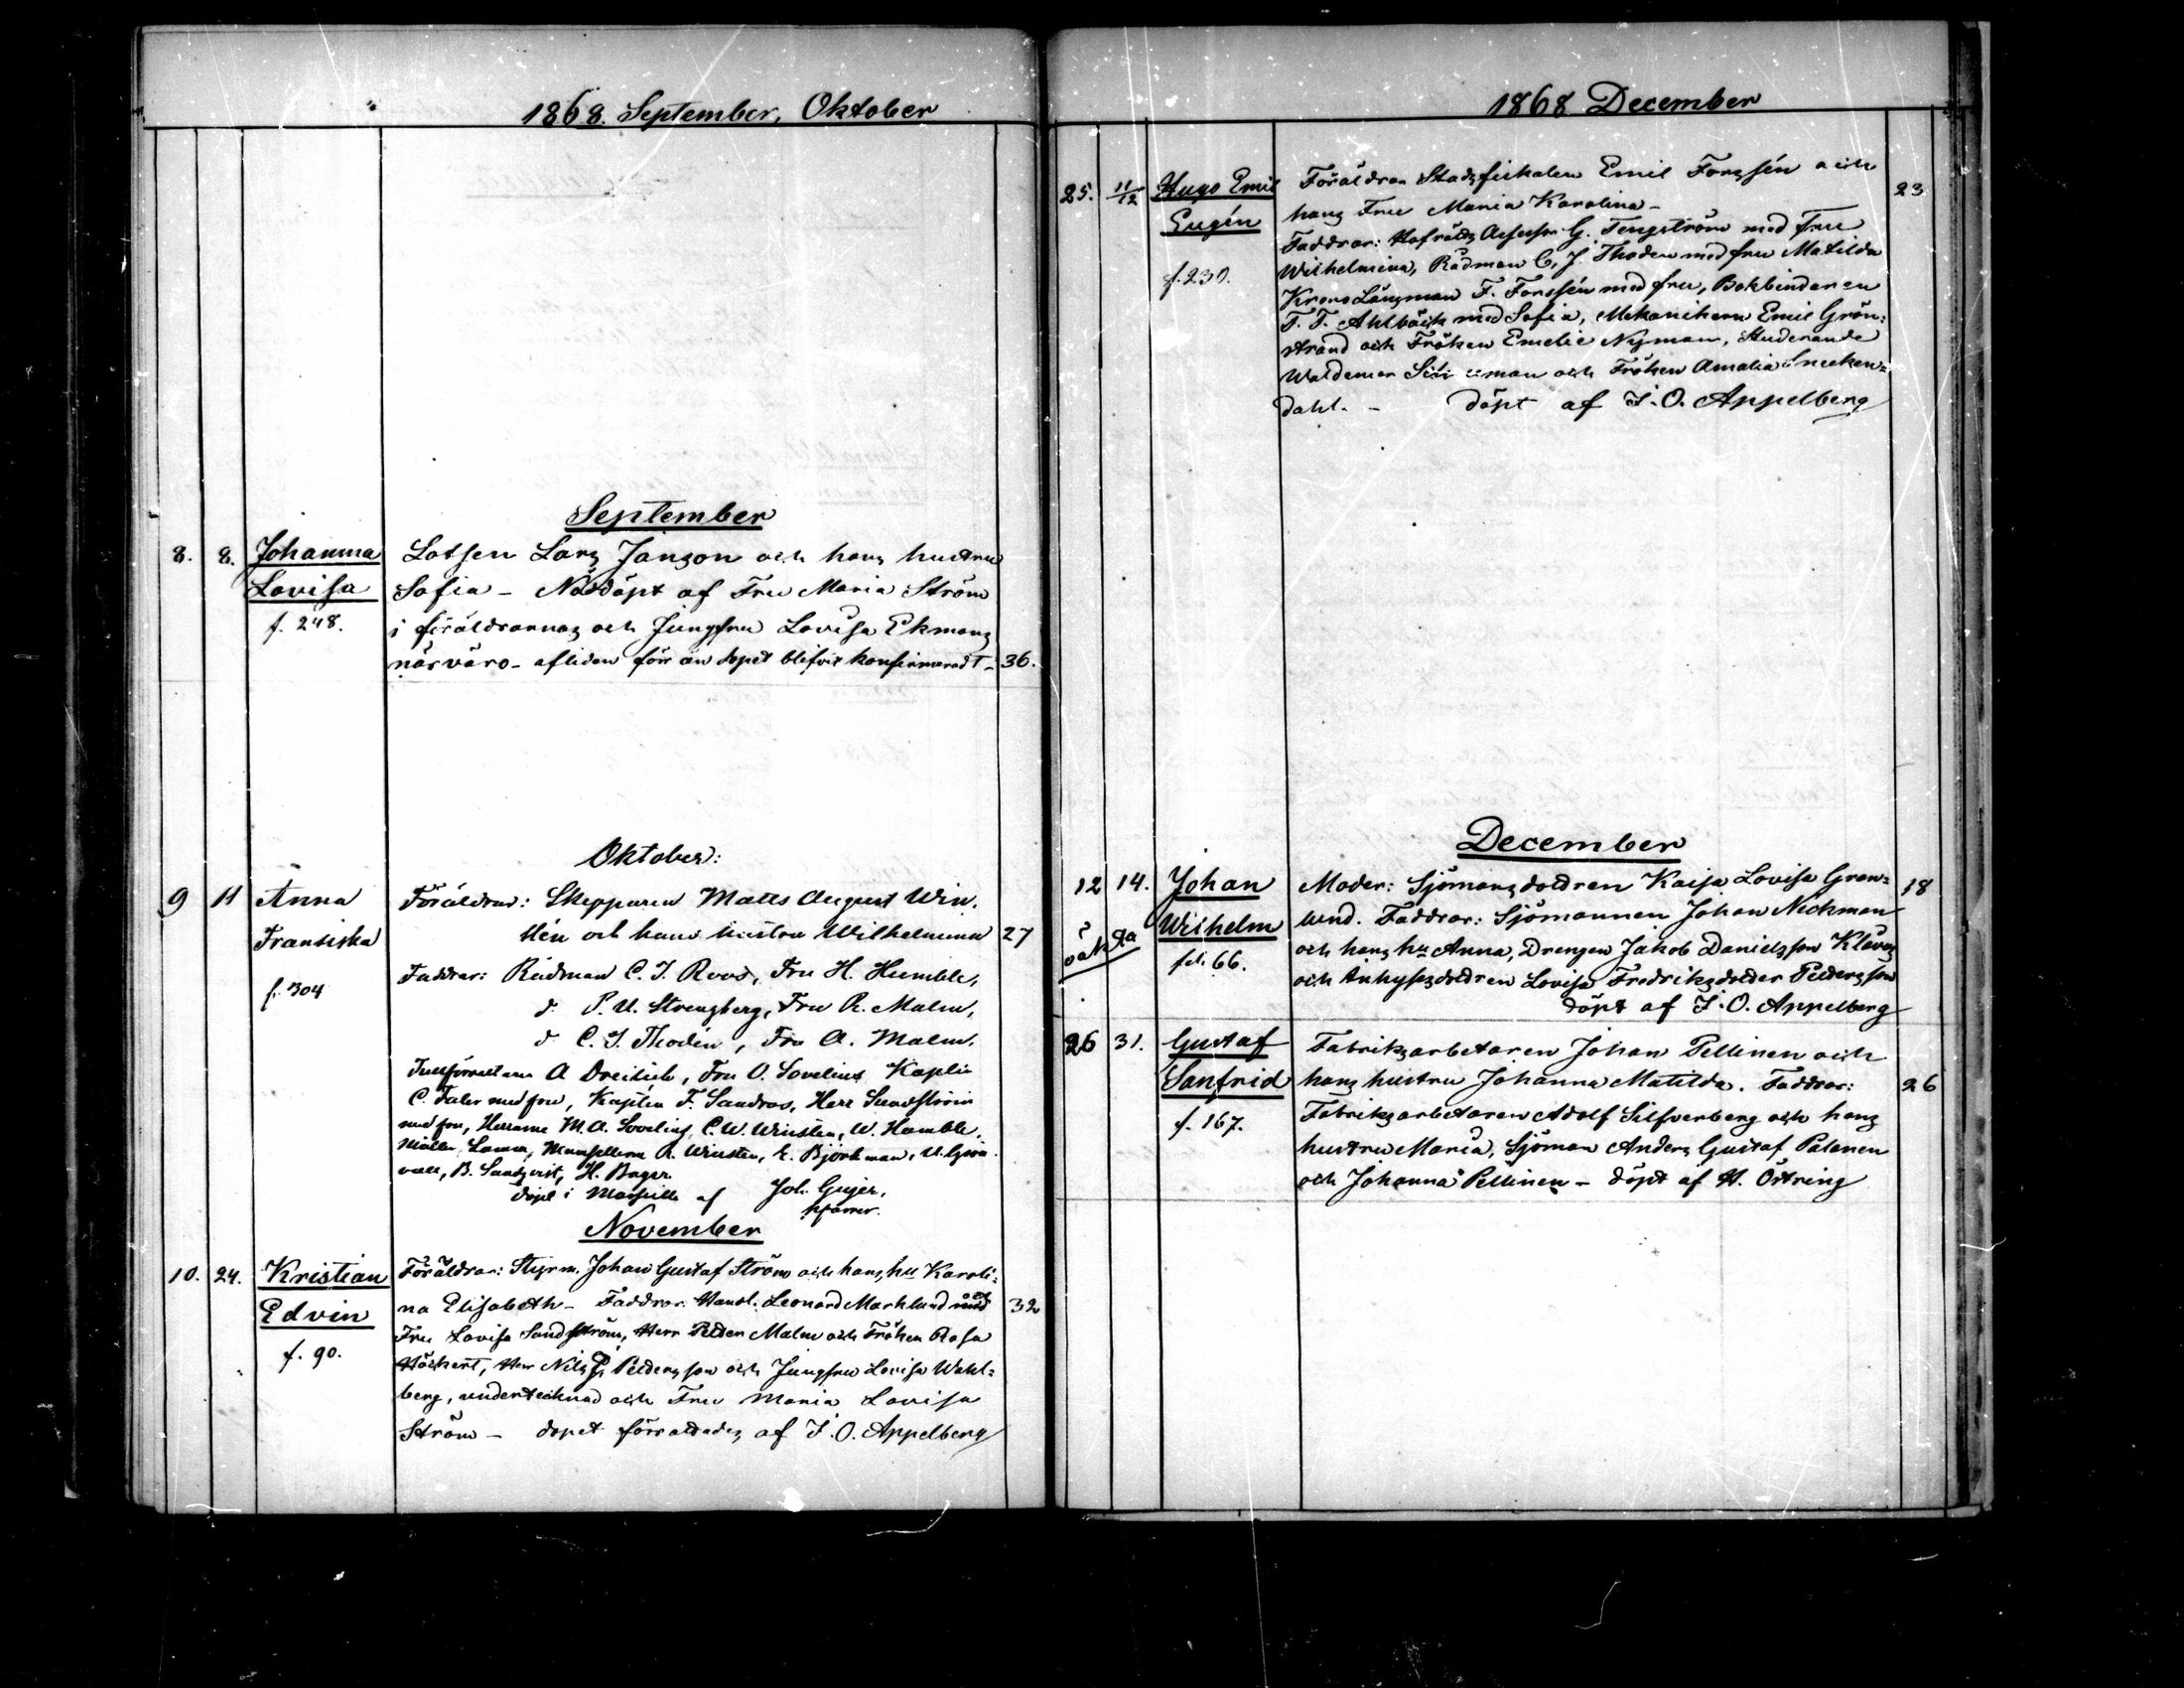 1868. September, Oktober
September
8. 8. Johanna Lotsen Lars Janson och hans hustru
Lovisa Sofia – Nöddöpt af Fru Maria Ström
f. 248. i föräldrarnas och Jungfru Lovisa Ekmans
närvaro – afliden förr än dopet blifvit konfirmeradt – 36.
Oktober:
9 11 Anna Föräldrar: Skepparen Matts August Win-
Fransiska stén och hans hustru Wilhelmina 27
Faddrar: Rådman C. J. Roos, Fru H. Humble,
f. 304
d. P. U. Strengberg, Fru R. Malm,
d. C. J. Thodén, Fru A. Malm,
Tullförvaltaren A Dreisich, Fru O. Sovelius Kapten
C. Faler med fru, Kapten F. Sandros, Herr Sundström
med fru, Herrarne M. A. Sovelius, C. W. Winsten, W. Humble,
Möller, Mamsellerna R. Winsten, E. Björkman, U. Grön-
vall, B. Sandqvist, H. Bager.
döpt i Marseille af Joh. Gujer,
November
10. 24. Kristian Föräldrar: Styrm. Johan Gustaf Ström och hans hu Karoli-
Edvin na Elisabeth – Faddrar: Handl. Leonard Marklund och 32
Fru Lovisa Sandström, Herr Petter Malm och Fröken Rosa
f. 90.
Höckert, Herr Nils P. Petterson och Jungfru Lovisa Wahl-
berg, undertecknad och Fru Maria Lovisa
Ström – dopet förrättades af J. O. Appelberg
1868 December
25. 11/12 Hugo Emil Föräldrar Stadsfiskalen Emil Forssén och 23
Eugén hans Fru Maria Karolina –
Faddrar: Hofrätts Assessor G. Tengström med fru
f. 230. Wilhelmina, Rådman C. J. Thodén med fru Matilda
Krono Länsman F. Forssén med fru, Bokbindaren
F. F. Ahlbäck med Sofia, Mekanikern Emil Grön-
strand och Fröken Emelie Nyman, Studerande
Waldemar och Fröken Amalia Snecken-
dahl. – döpt af J. O. Appelberg
December
12 14. Johan Moder: Sjömansdottren Kaisa Lovisa Gran- 18
Wilhelm lund. Faddrar: Sjömannen Johan Neckman
oäkta
och hans hu Anna, Drengen Jakob Danielsson Klåvus
fol. 66.
och Inhyses dottren Lovisa Fredriksdotter Petterson
döpt af J. O. Appelberg
26 31. Gustaf Fabriksarbetaren Johan Pellinen och
Sanfrid hans hustru Johanna Matilda. Faddrar: 26
f. 167. Fabriksarbetaren Adolf Silfverberg och hans
hustru Maria, Sjöman Anders Gustaf Palanen
och Johanna Pellinen – döpt af H. Östring